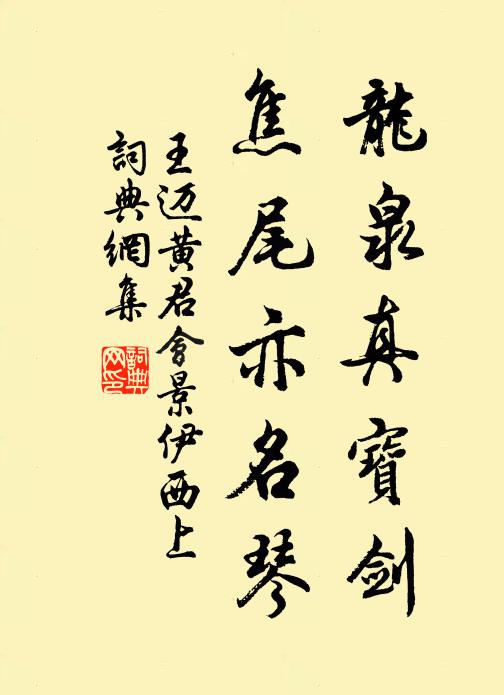 龍泉真寶劍
焦尾亦名琴
王迈黄君會景伊西上
詞典網集
詞典網印